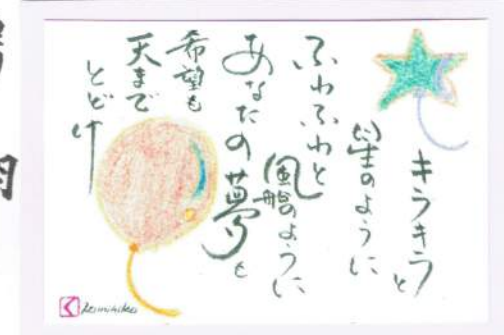 キラキラと
星のように
ふわふわと
風船のように
あなたの夢も
希望も
天まで
とどけ